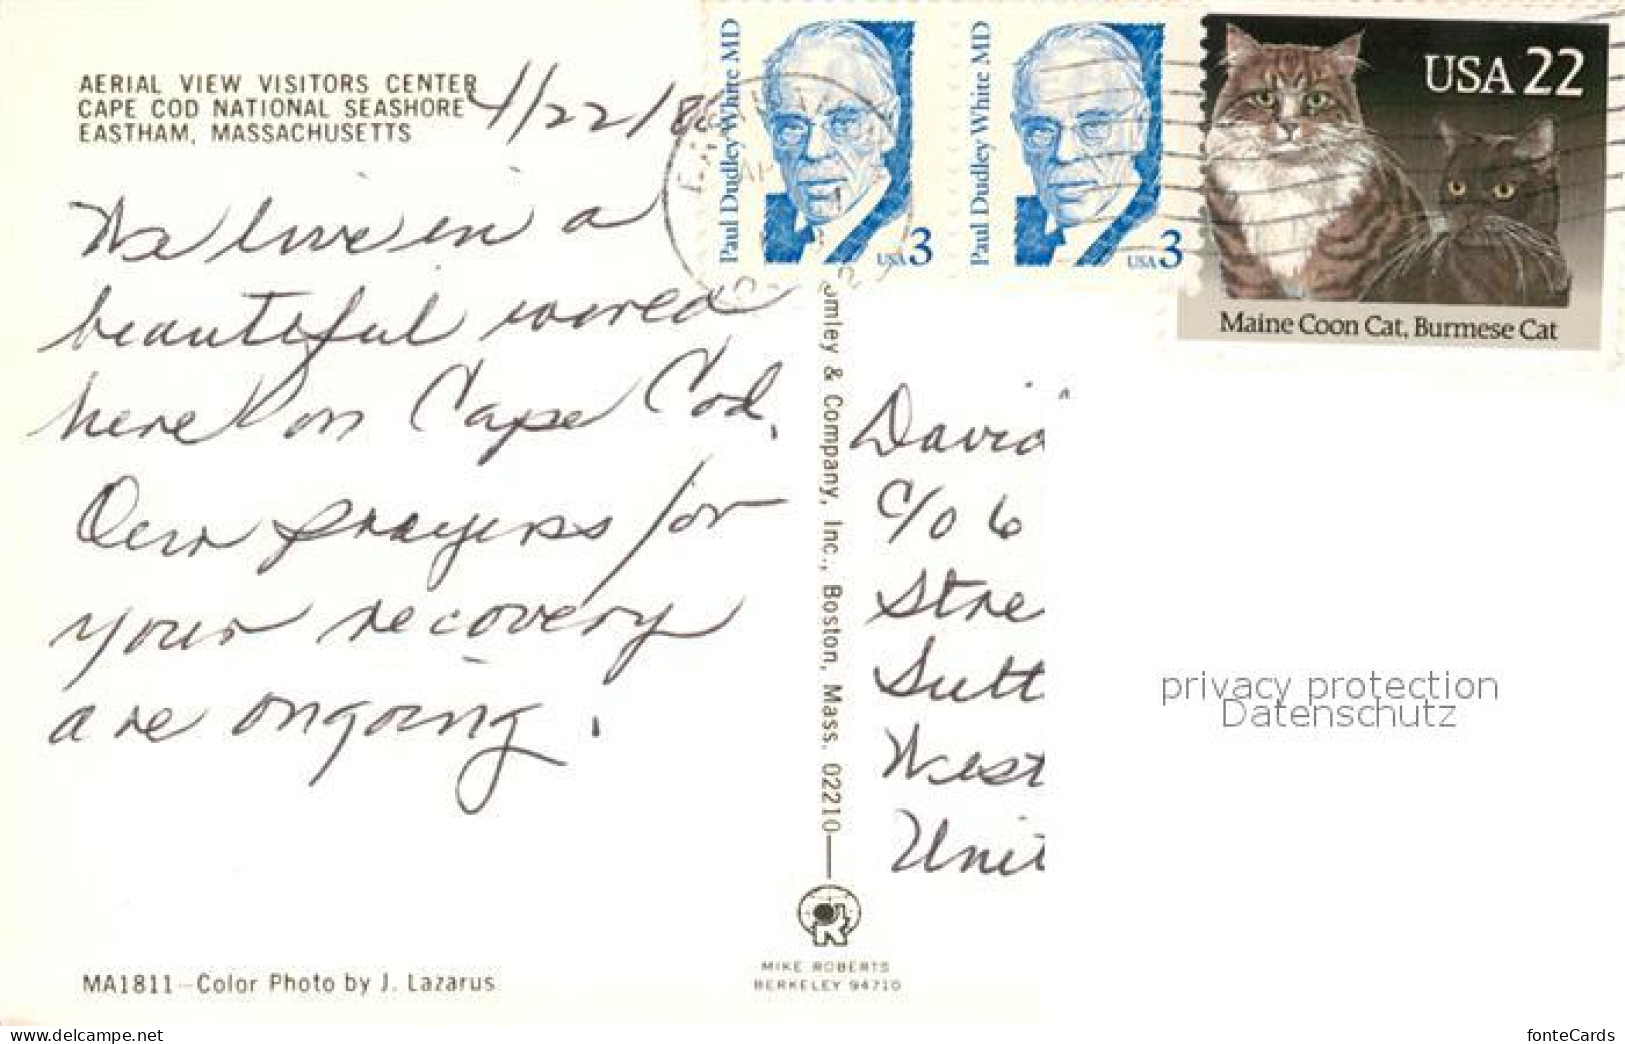 AERIAL VIEW VISITORS CENTER
CAPE COD NATIONAL SEASHORE
EASTHAM, MASSACHUSETTS
4/22/88
We live in a
beautiful world
here on Cape Cod.
Our prayers for
your recovery
are ongoing.
MA1811—Color Photo by J. Lazarus
& Company, Inc., Boston, Mass. 02210
MIKE ROBERTS
BERKELEY 94710
Paul Dudley White MD
USA 3
Paul Dudley White MD
USA 3
USA 22
Maine Coon Cat, Burmese Cat
David
c/o 6
Stre
Sutt
West
Unit
privacy protection
Datenschutz
delcampe.net
fonteCards